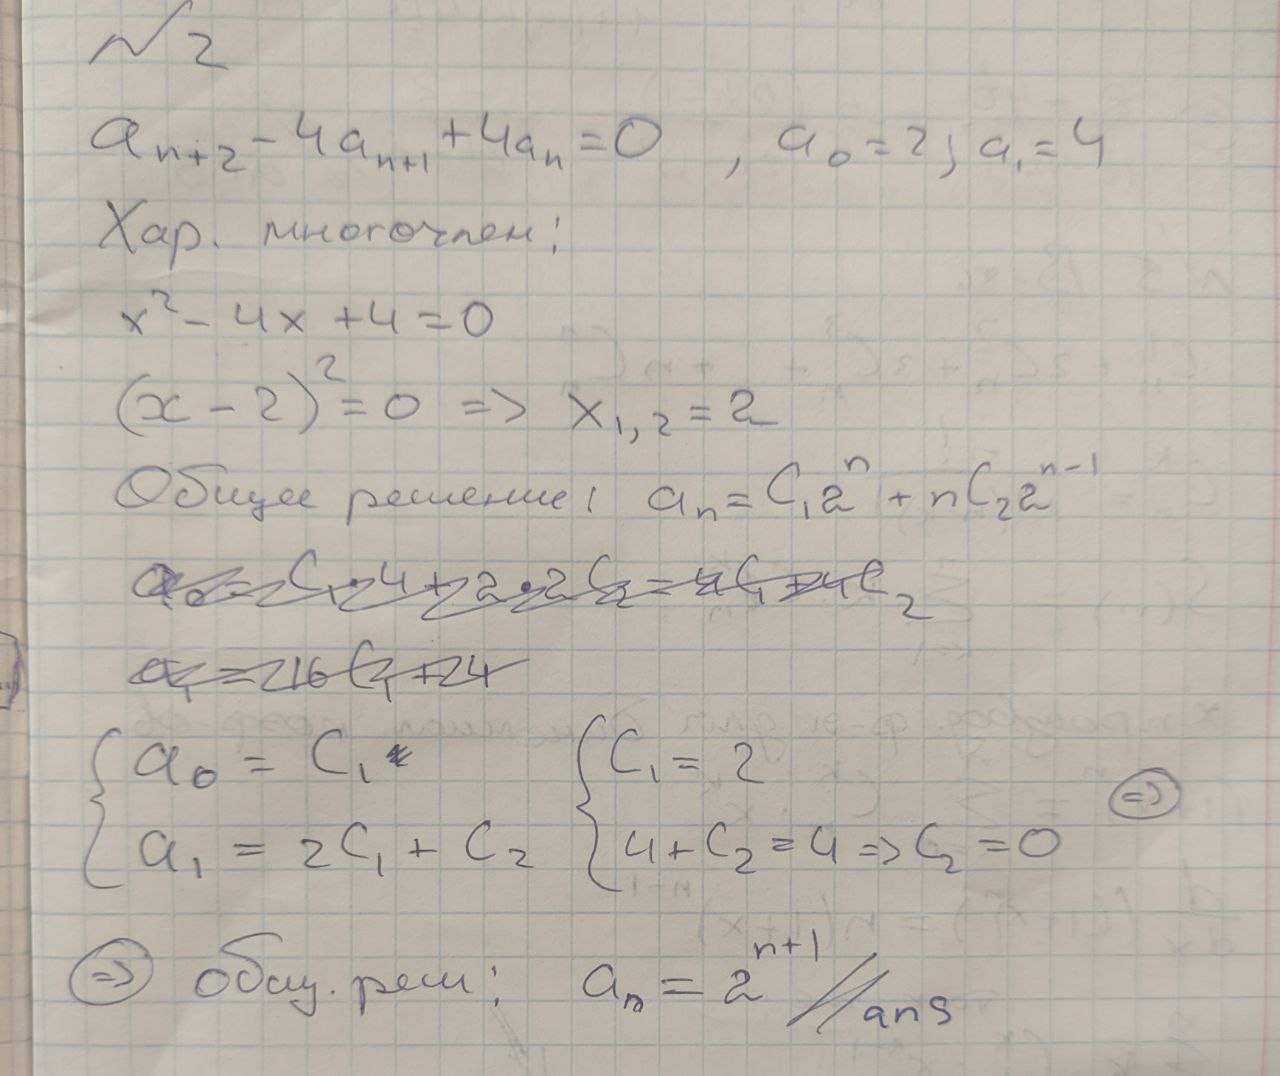 №2
aₙ₊₂ - 4aₙ₊₁ + 4aₙ = 0 , a₀ = 2; a₁ = 4
Хар. многочлен:
x² - 4x + 4 = 0
(x - 2)² = 0 => x₁,₂ = 2
Общее решение: aₙ = C₁2ⁿ + nC₂2ⁿ⁻¹
a₀ = C₁ C₁ = 2
a₁ = 2C₁ + C₂ 4 + C₂ = 4 => C₂ = 0 =>
=> общ. реш: aₙ = 2ⁿ⁺¹ // ans